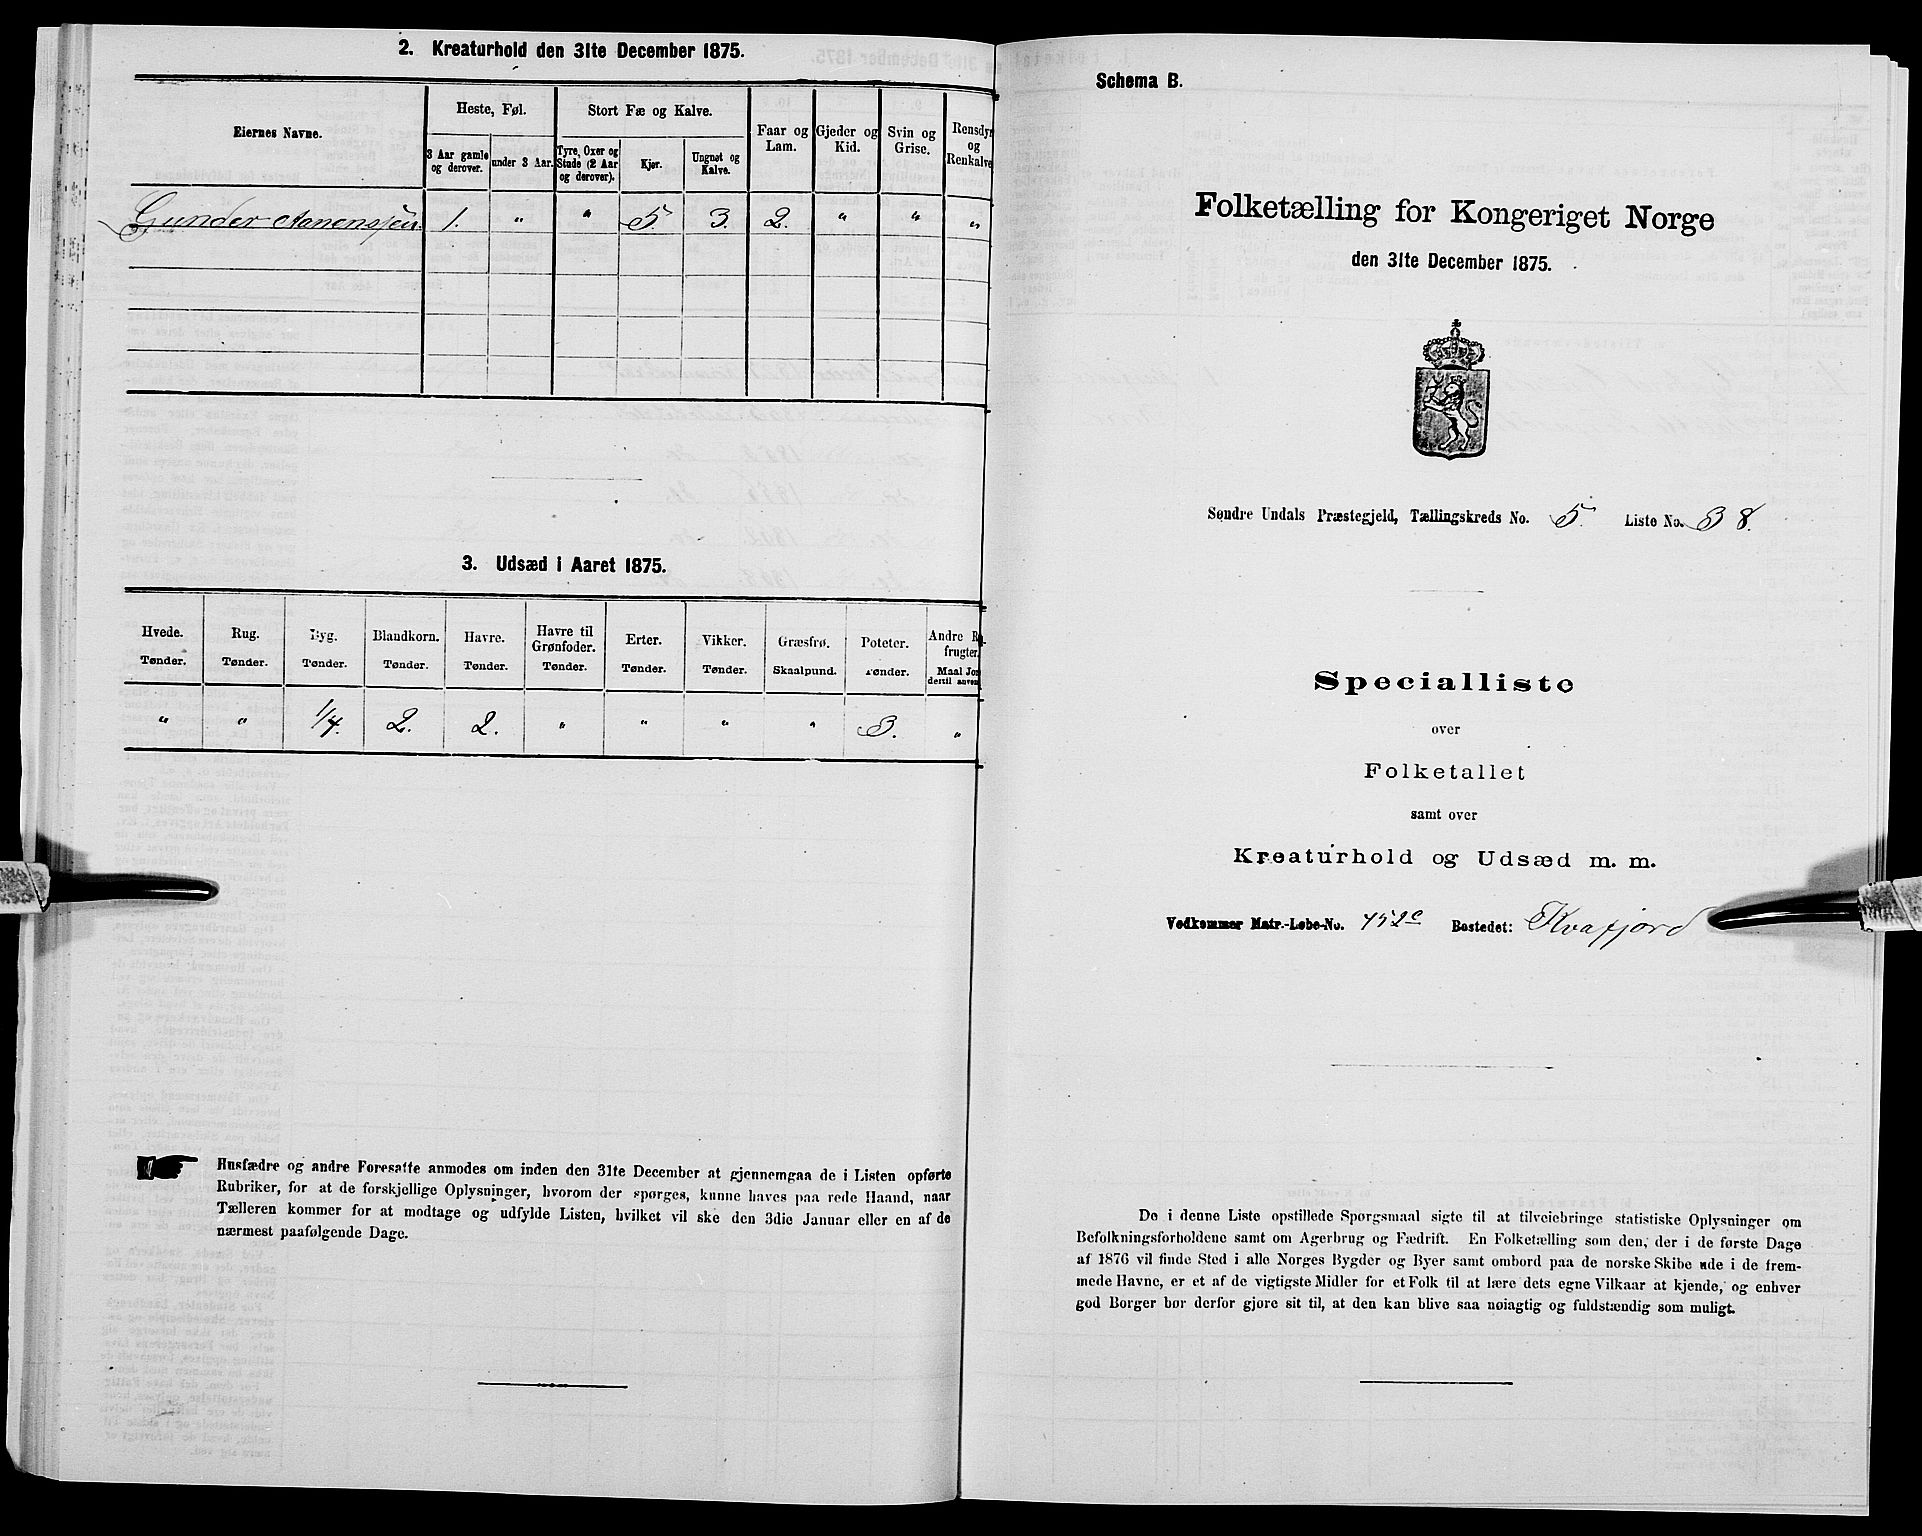 2. Kreaturhold den 31te December 1875.
Eiernes Navne.
Heste, Føl.
3 Aar gamle og derover.
under 3 Aar.
Stort Fæ og Kalve.
Tyre, Oxer og Stude (2 Aar og derover).
Kjør.
Ungnøt og Kalve.
Faar og Lam.
Gjeder og Kid.
Svin og Grise.
Rensdyr og Renkalve
Gunder Aanensen. 1. " " 5. 3. 2. " " "
3. Udsæd i Aaret 1875.
Hvede. Tønder.
Rug. Tønder.
Byg. Tønder.
Blandkorn. Tønder.
Havre. Tønder.
Havre til Grønfoder. Tønder.
Erter. Tønder.
Vikker. Tønder.
Græsfrø. Skaalpund.
Poteter. Tønder.
Andre R frugter. Maal Jor dertil anven
" " 1/4. 2. 2. " " " " 3. "
Husfædre og andre Foresatte anmodes om inden den 31te December at gjennemgaa de i Listen opførte
Rubriker, for at de forskjellige Oplysninger, hvorom der spørges, kunne haves paa rede Haand, naar
Tælleren kommer for at modtage og udfylde Listen, hvilket vil ske den 3die Januar eller en af de
nærmest paafølgende Dage.
Schema B.
Folketælling for Kongeriget Norge
den 31te December 1875.
Søndre Undals Præstegjeld, Tællingskreds No. 5. Liste No. 38.
Specialliste
over
Folketallet
samt over
Kreaturhold og Udsæd m. m.
Vedkommer Matr.-Løbe-No. 452c Bostedet: Kvafjord
De i denne Liste opstillede Spørgsmaal sigte til at tilveiebringe statistiske Oplysninger om
Befolkningsforholdene samt om Agerbrug og Fædrift. En Folketælling som den, der i de første Dage
af 1876 vil finde Sted i alle Norges Bygder og Byer samt ombord paa de norske Skibe ude i de frem-
mede Havne, er et af de vigtigste Midler for et Folk til at lære dets egne Vilkaar at kjende, og enhver
god Borger bør derfor gjøre sit til, at den kan blive saa nøiagtig og fuldstændig som muligt.